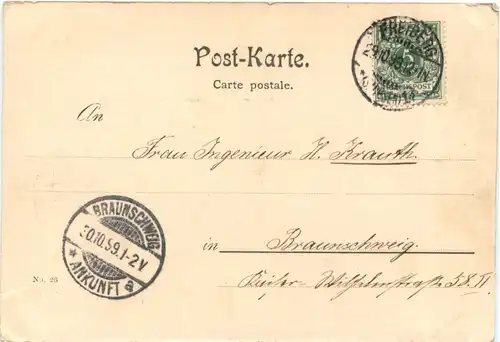 Post-Karte.
Carte postale.
FREIBERG
An
Frau Ingenieur H. Krauth.
BRAUNSCHWEIG
30.10.99.1-2V
* ANKUNFT a
in Braunschweig.
Kaiser-Wilhelmstraße 58.II
No. 26